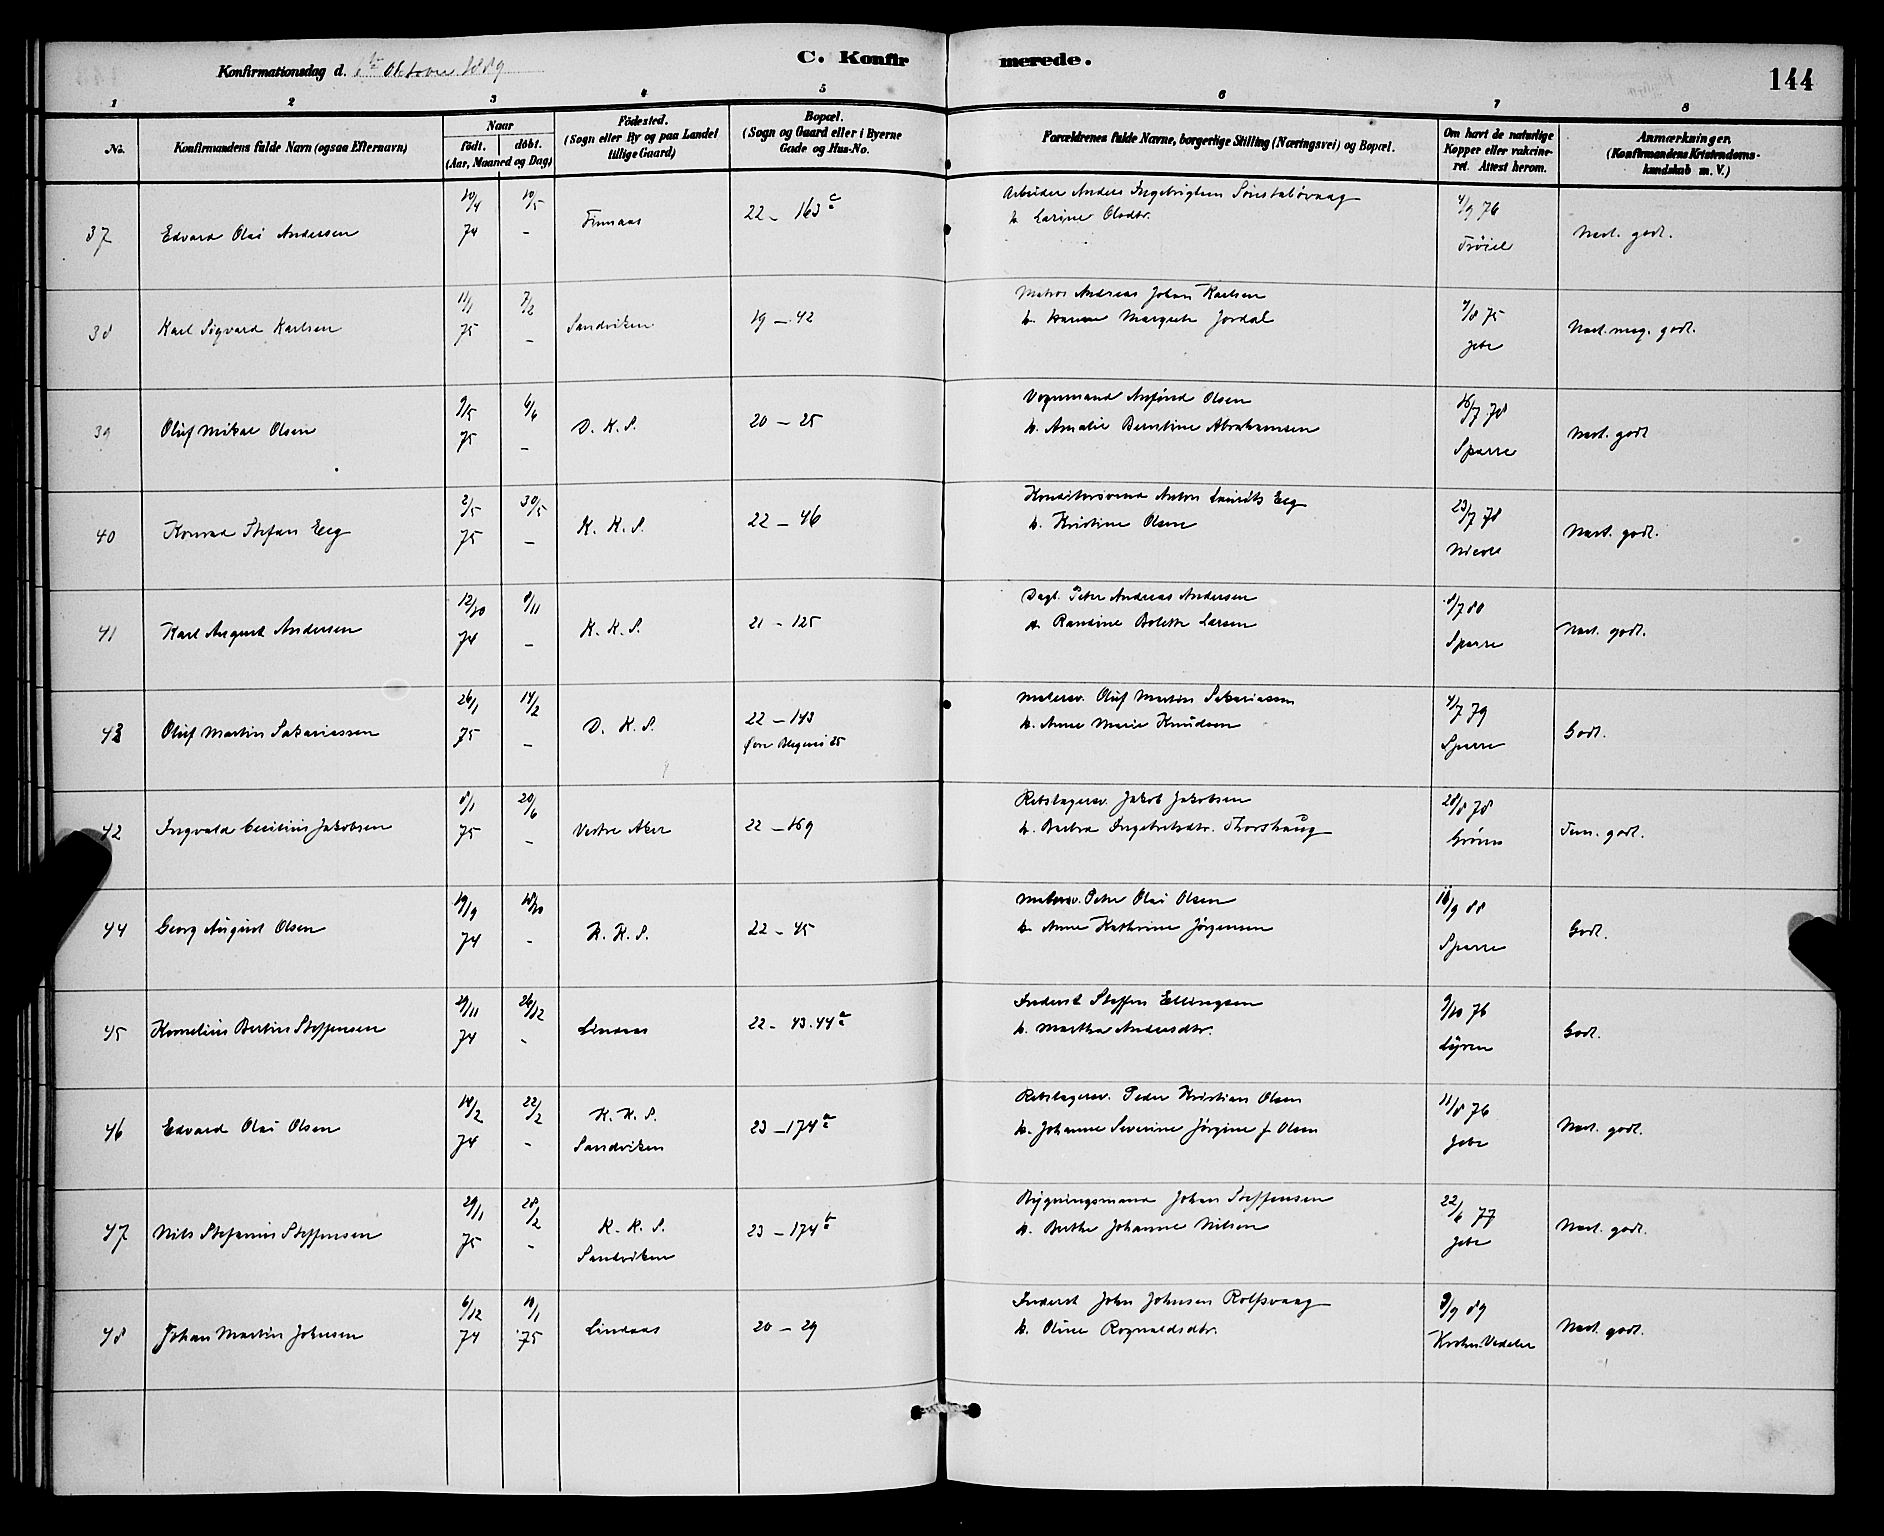 Konfirmationsdag d. Oktober 1889
C. Konfirmerede.
144
1 2 3 4 5 6 7 8
No.
Konfirmandens fulde Navn (ogsaa Efternavn)
Naar
födt. döbt.
(Aar, Maaned og Dag)
Födested.
(Sogn eller By og paa Landet
tillige Gaard)
Bopæl.
(Sogn og Gaard eller i Byerne
Gade og Hus-No.
Forældrenes fulde Navne, borgerlige Stilling (Næringsvei) og Bopæl.
Om havt de naturlige
Kopper eller vakcine-
ret. Attest herom.
Anmærkninger.
(Konfirmandens Kristendoms-
kundskab m. V.)
37 Edvard Olai Andersen
10/4 74
10/5 -
Finnaas
22 - 163 a
Arbeider Anders Ingebrigtsen
h. Larine Olsdtr.
4/9 76
Trøiel
Mest. godt.
38 Karl Sigvard Karlsen
11/1 75
7/2 -
Sandviken
19 - 42
Matros Andreas Johan Karlsen
h. Hanne Margrete Jordal
7/8 75
Jebe
Mest. meg. godt.
39 Oluf Mikal Olsen
9/5 75
6/6 -
D. K. S.
20 - 25
Vognmand Anfind Olsen
h. Amalie Berntine Abrahamsen
16/7 78
Sparre
Mest. godt
40 Konrad Stefan Eeg
2/5 75
30/5 -
K. K. S.
22 - 46
Konditorsvend Anton Lauritz Eeg
h. Kristine Olsen
23/7 78
Mest. godt.
41 Karl August Andersen
12/10 74
8/11 -
K. K. S.
21 - 125
Dagl. Peter Andreas Andersen
h. Randine Bolette Larsen
8/7 80
Sparre
Mest. godt.
43 Oluf Martin Sakariassen
26/1 75
14/2 -
D. K. S.
22 - 143
Øvre Blegevei 25
Malersv. Oluf Martin Sakariassen
h. Anne Marie Knudsen
4/7 79
Sparre
Godt.
42 Ingvald Cecilius Jakobsen
8/1 75
20/6 -
Vestre Aker
22 - 169
Rebslagersv. Jakob Jakobsen
h. Barbra Ingebretsdtr. Thorshaug
28/8 78
Grönn
Tem. godt.
44 Georg August Olsen
19/9 74
18/10 -
K. K. S.
22 - 45
Malersv. Peter Olai Olsen
h. Anne Kathrine Jörgensen
18/9 88
Sparre
Godt.
45 Kornelius Bertin Steffensen
29/11 74
26/12 -
Lindaas
22 - 43.44 a
Inderst Steffen Ellingsen
h. Martha Andersdtr.
9/10 76
Lyren
Godt.
46 Edvard Olai Olsen
14/2 74
22/2 -
K. K. S.
Sandviken
23 - 174 a
Rebslagersv. Peder Kristian Olsen
h. Johanne Severine Jörgine f. Olsen
11/8 76
Jebe
Mest. godt.
47 Nils Stefanus Steffensen
29/1 75
28/2 -
K. K. S.
Sandviken
23 - 174 b
Bygningsmand Johan Steffensen
h. Berthe Johanne Nilsen
22/6 77
Jebe
Mest. godt.
48 Johan Martin Johnsen
6/12 74
10/1 75
Lindaas
20 - 29
Inderst John Johnsen Rolfsvaag
h. Oline Rognaldsdtr.
3/9 89
Vedeler
Mest. godt.